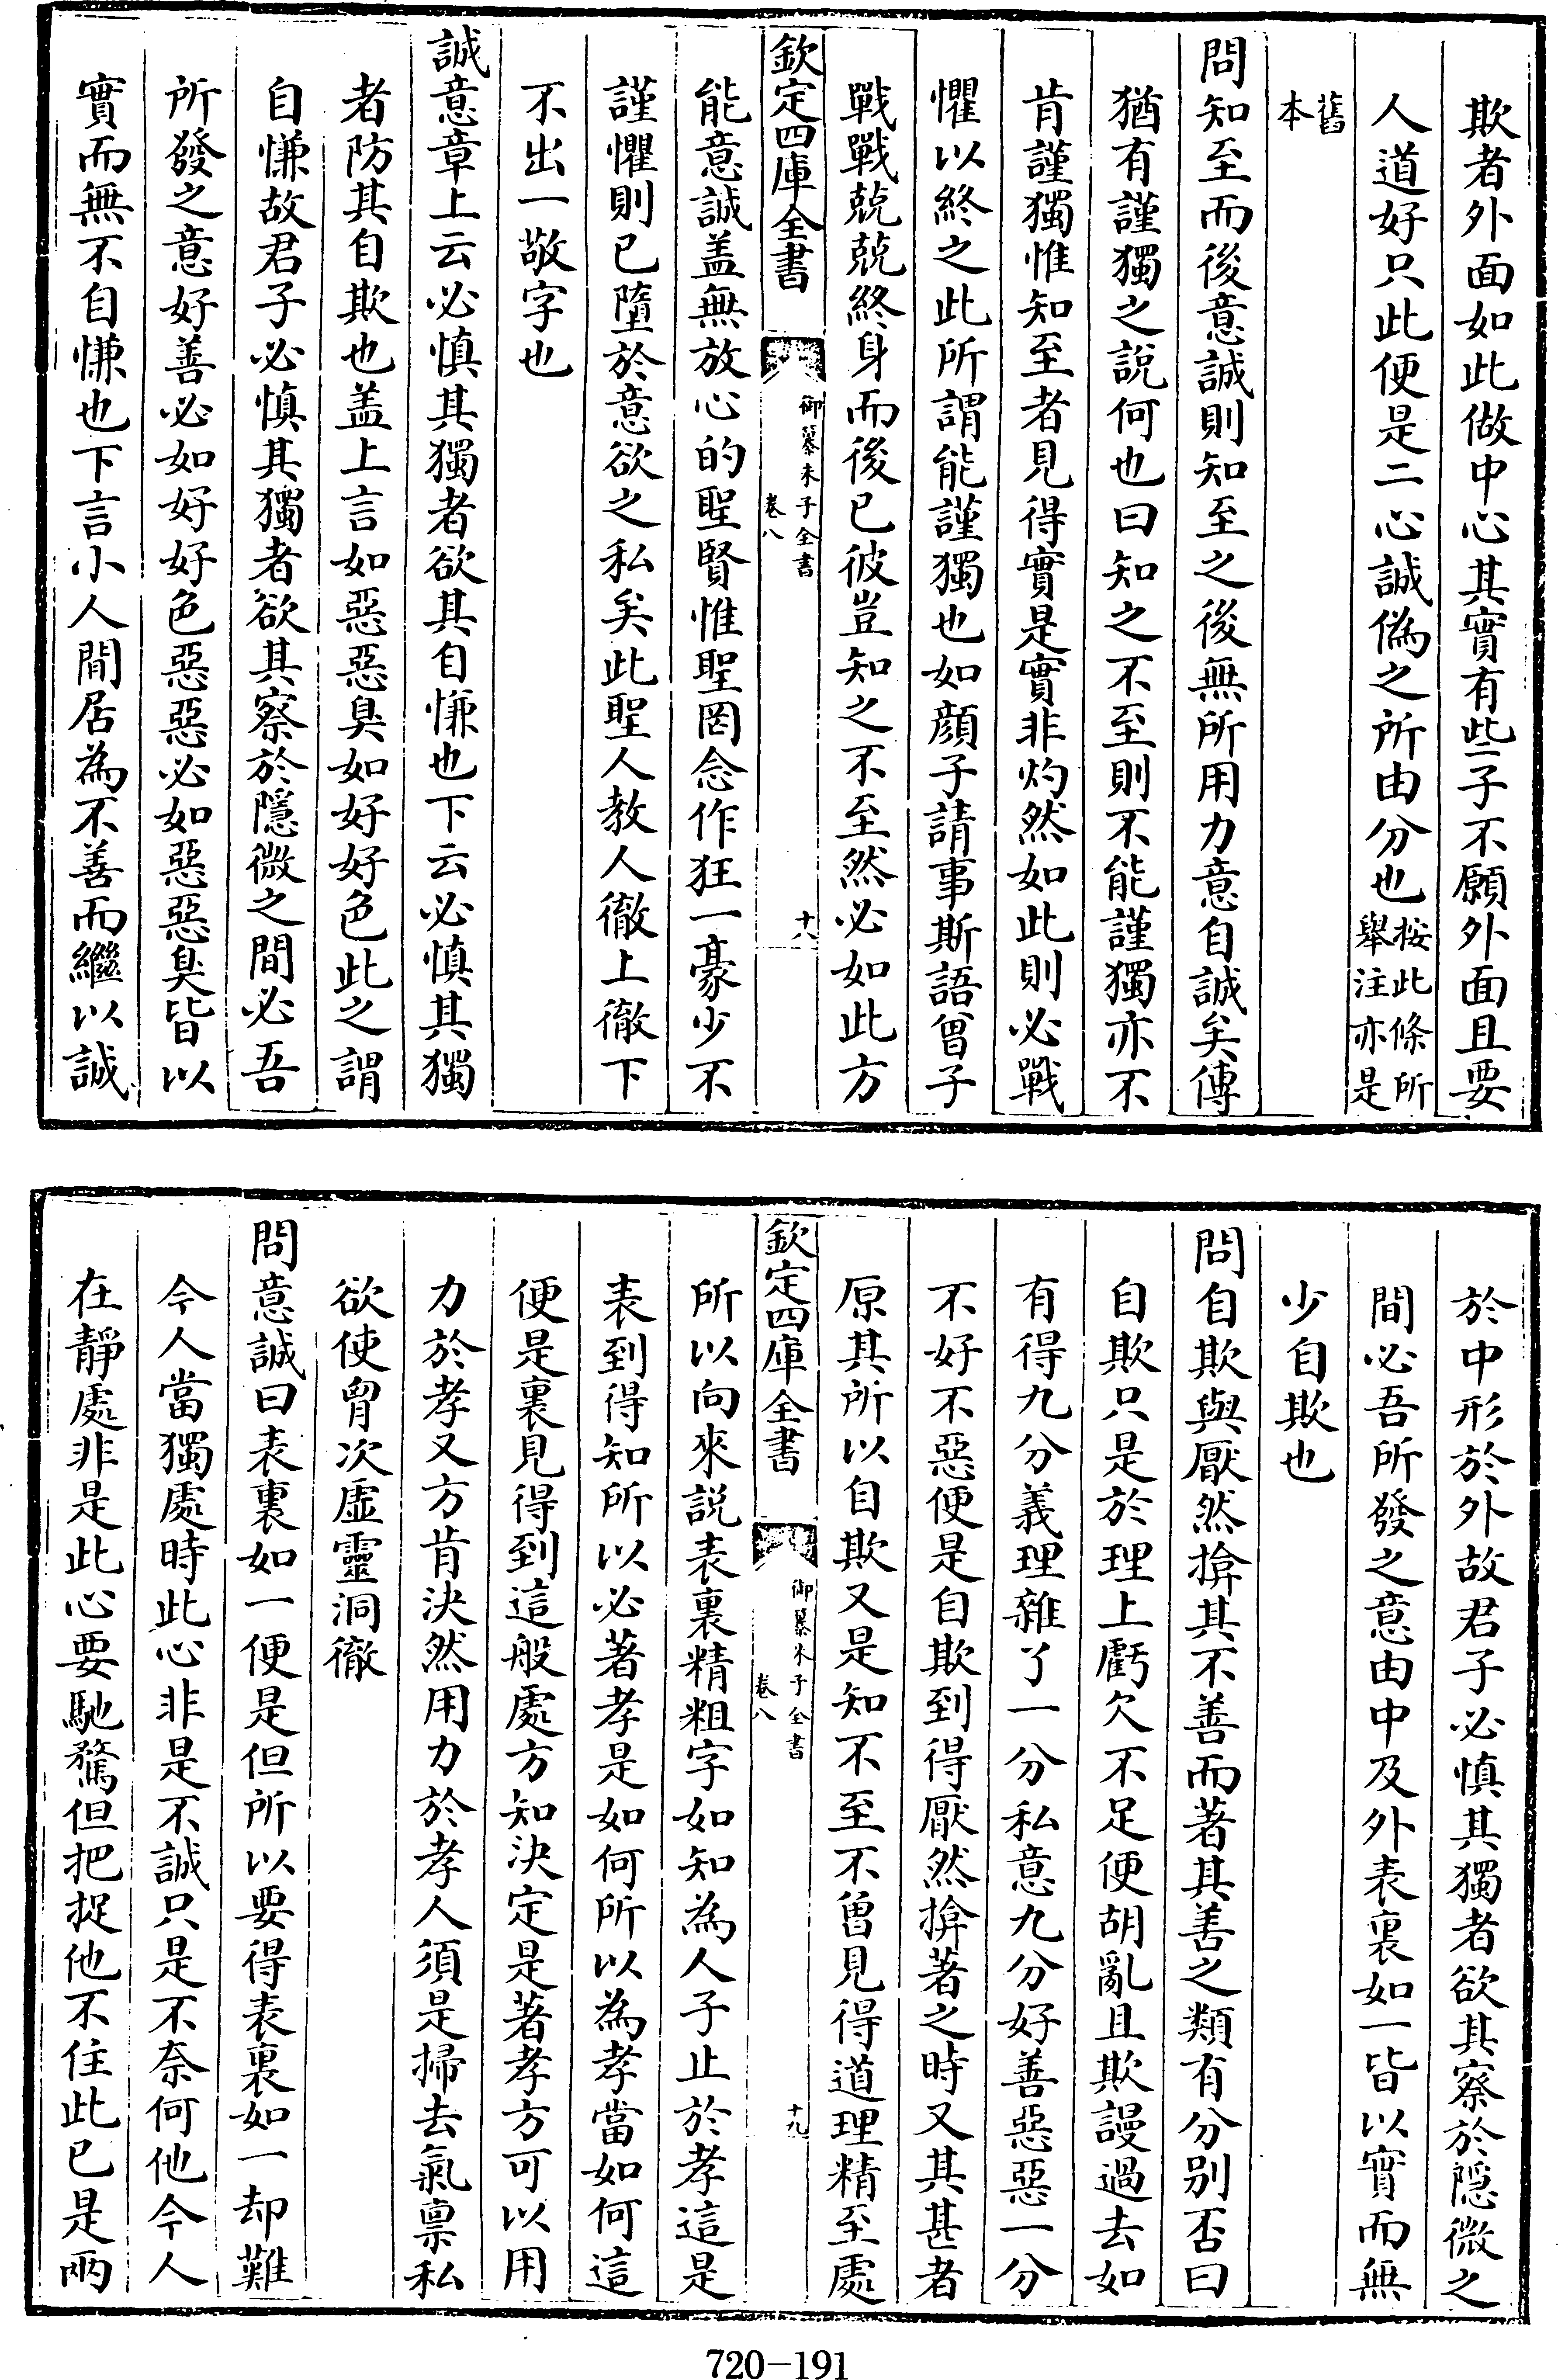 欺者外面如此做中心其實有些子不願外面且要
人道好只此便是二心誠偽之所由分也按此條所
舉注亦是
舊
本
問知至而後意誠則知至之後無所用力意自誠矣傳
猶有謹獨之說何也曰知之不至則不能謹獨亦不
肯謹獨惟知至者見得實是實非灼然如此則必戰
懼以終之此所謂能謹獨也如顔子請事斯語曾子
戰戰兢兢終身而後已彼豈知之不至然必如此方
欽定四庫全書
御纂朱子全書
卷八
十八
能意誠盖無放心的聖賢惟聖罔念作狂一豪少不
謹懼則已墮於意欲之私矣此聖人教人徹上徹下
不出一敬字也
誠意章上云必慎其獨者欲其自慊也下云必慎其獨
者防其自欺也盖上言如惡惡臭如好好色此之謂
自慊故君子必慎其獨者欲其察於隱微之間必吾
所發之意好善必如好好色惡惡必如惡惡臭皆以
實而無不自慊也下言小人閒居為不善而繼以誠
於中形於外故君子必慎其獨者欲其察於隱微之
間必吾所發之意由中及外表裏如一皆以實而無
少自欺也
問自欺與厭然揜其不善而著其善之類有分别否曰
自欺只是於理上虧欠不足便胡亂且欺謾過去如
有得九分義理雜了一分私意九分好善惡惡一分
不好不惡便是自欺到得厭然揜著之時又其甚者
原其所以自欺又是知不至不曾見得道理精至處
欽定四庫全書
御纂朱子全書
卷八
十九
所以向來説表裏精粗字如知為人子止於孝這是
表到得知所以必著孝是如何所以為孝當如何這
便是裏見得到這般處方知決定是著孝方可以用
力於孝又方肯決然用力於孝人須是掃去氣稟私
欲使胷次虛靈洞徹
問意誠曰表裏如一便是但所以要得表裏如一却難
今人當獨處時此心非是不誠只是不奈何他今人
在靜處非是此心要馳騖但把捉他不住此已是兩
720-191